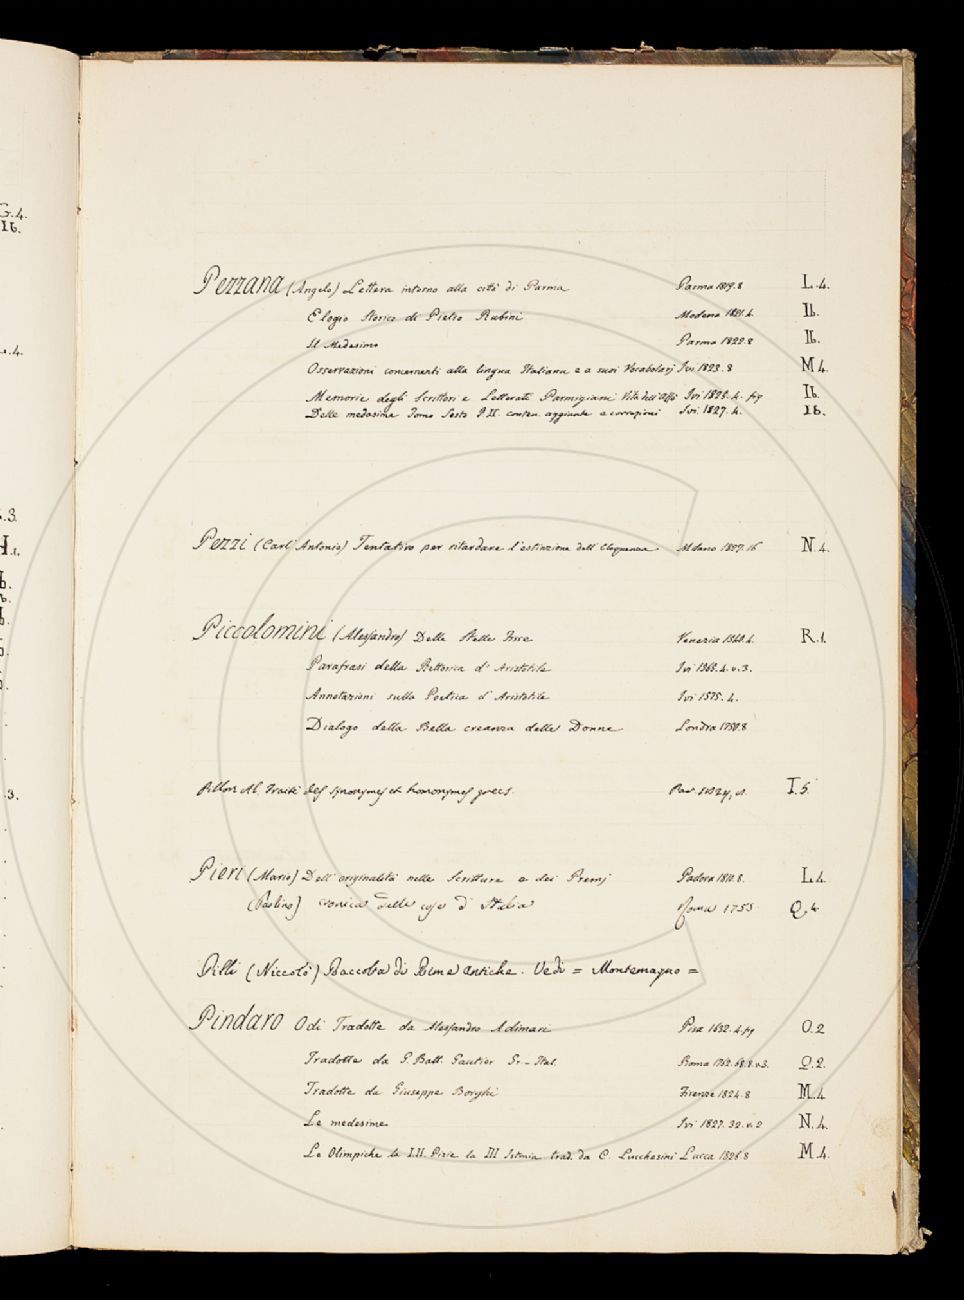 G.4.
Ib.
.4.
.3.
H.1.
Ib.
.3.
Pezzana (Angelo) Lettera intorno alla città di Parma Parma 1819.8 L.4.
Elogio Storico di Pietro Rubini Modena 1821.4. Ib.
Il Medesimo Parma 1822.8 Ib.
Osservazioni concernenti alla lingua Italiana e a suoi Vocabolarj Ivi 1823.8 M4.
Memorie degli Scrittori e Letterati Parmigiani Vita dell'Affò Ivi 1825.4. fig Ib.
Delle medesime Tomo Sesto P.II. conten. aggiunte e correzioni Ivi 1827.4. Ib.
Pezzi (Carl'Antonio) Tentativo per ritardare l'estinzione dell'Eloquenza Milano 1827.16 N.4.
Piccolomini (Alessandro) Delle Stelle fisse Venezia R.1.
Parafrasi della Rettorica d'Aristotile Ivi
Annotazioni sulla Poetica d'Aristotile Ivi 1575.4.
Dialogo della Bella creanza delle Donne Londra 1750.8
Pillon Al. Traité des synonymes et homonymes grecs. Par 1824, I.5.
Pieri (Mario) Dell'originalità nelle Scritture e dei Premj Padova L.4.
(Paolino) Cronica delle cose d'Italia Roma 1755 Q.4
Pilli (Niccolò) Raccolta di Rime antiche. Vedi = Montemagno =
Pindaro Odi Tradotte da Alessandro Adimari Pisa 1632.4.fig O.2
Tradotte da G. Batt. Gautier Gr.-Ital. Roma 1762.68.8.v.3. Q.2.
Tradotte da Giuseppe Borghi Firenze 1824.8 M.4
Le medesime Ivi 1827.32.v.2 N.4.
Le Olimpiche la I.II. Pizie la III Istmia trad. da C. Lucchesini Lucca 1826.8 M.4.